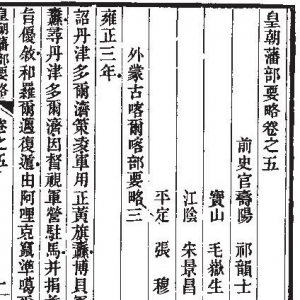 皇朝藩部要略卷之五
前史官壽陽 祁韻士
寶山 毛嶽生
江陰 宋景昌
平定 張穆
外蒙古喀爾喀部要略三
雍正三年
詔丹津多爾濟策凌軍用正黃旗纛博貝軍
纛尋丹津多爾濟因督視軍營駐馬并捐
旨優敘和羅爾邁復遁由阿哩克竄準噶
皇朝藩部要略 卷之五